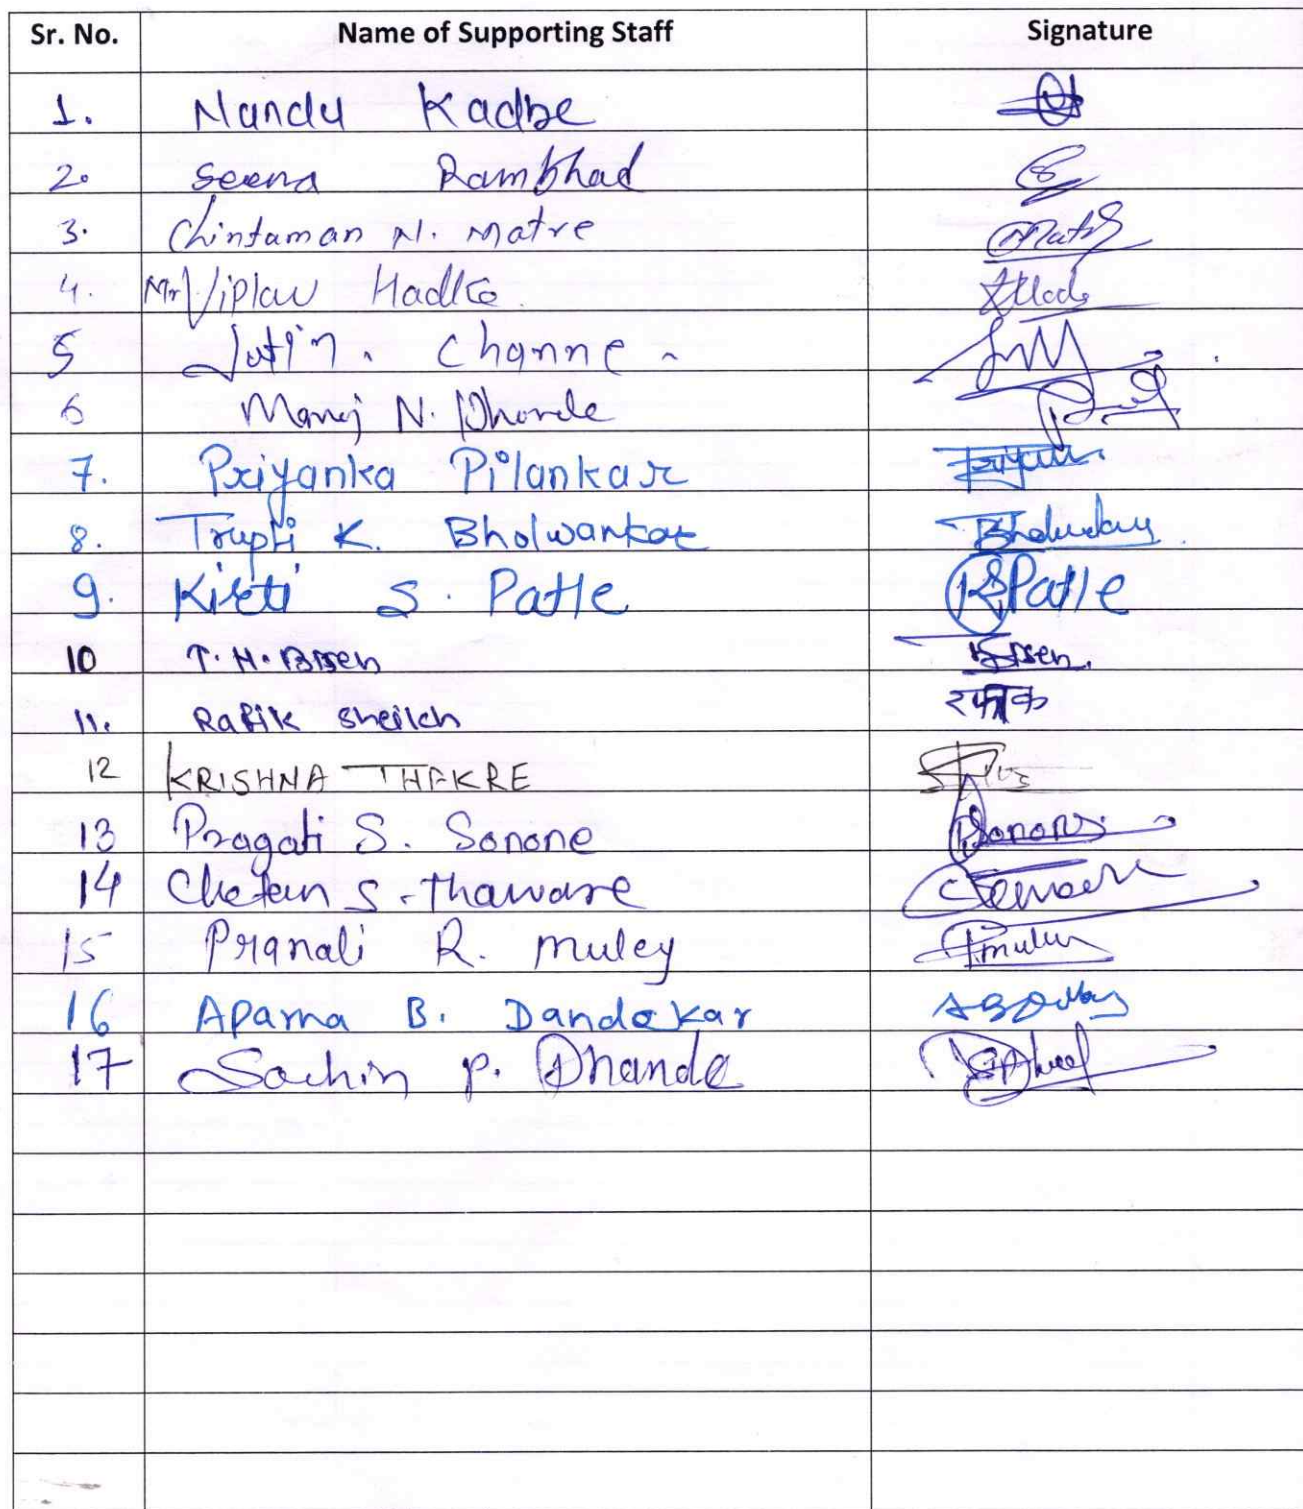 Sr. No. Name of Supporting Staff Signature
1. Nandu Kadbe
2. Seena Rambhad
3. Chintaman N. Matre
4. Mr. Viplav Hadke
5 Jatin. Channe.
6 Manoj N. Dhonde
7. Priyanka Pilankar
8. Trupti K. Bholwankar
9. Kirti S. Patle RSPatle
10 T. H. Bisen Bisen.
11. Rafik Sheikh रफीक
12 KRISHNA THAKRE
13 Pragati S. Sonone
14 Chetan S. Thaware
15 Pranali R. Muley Pmuley
16 Aparna B. Dandekar
17 Sachin P. Dhande